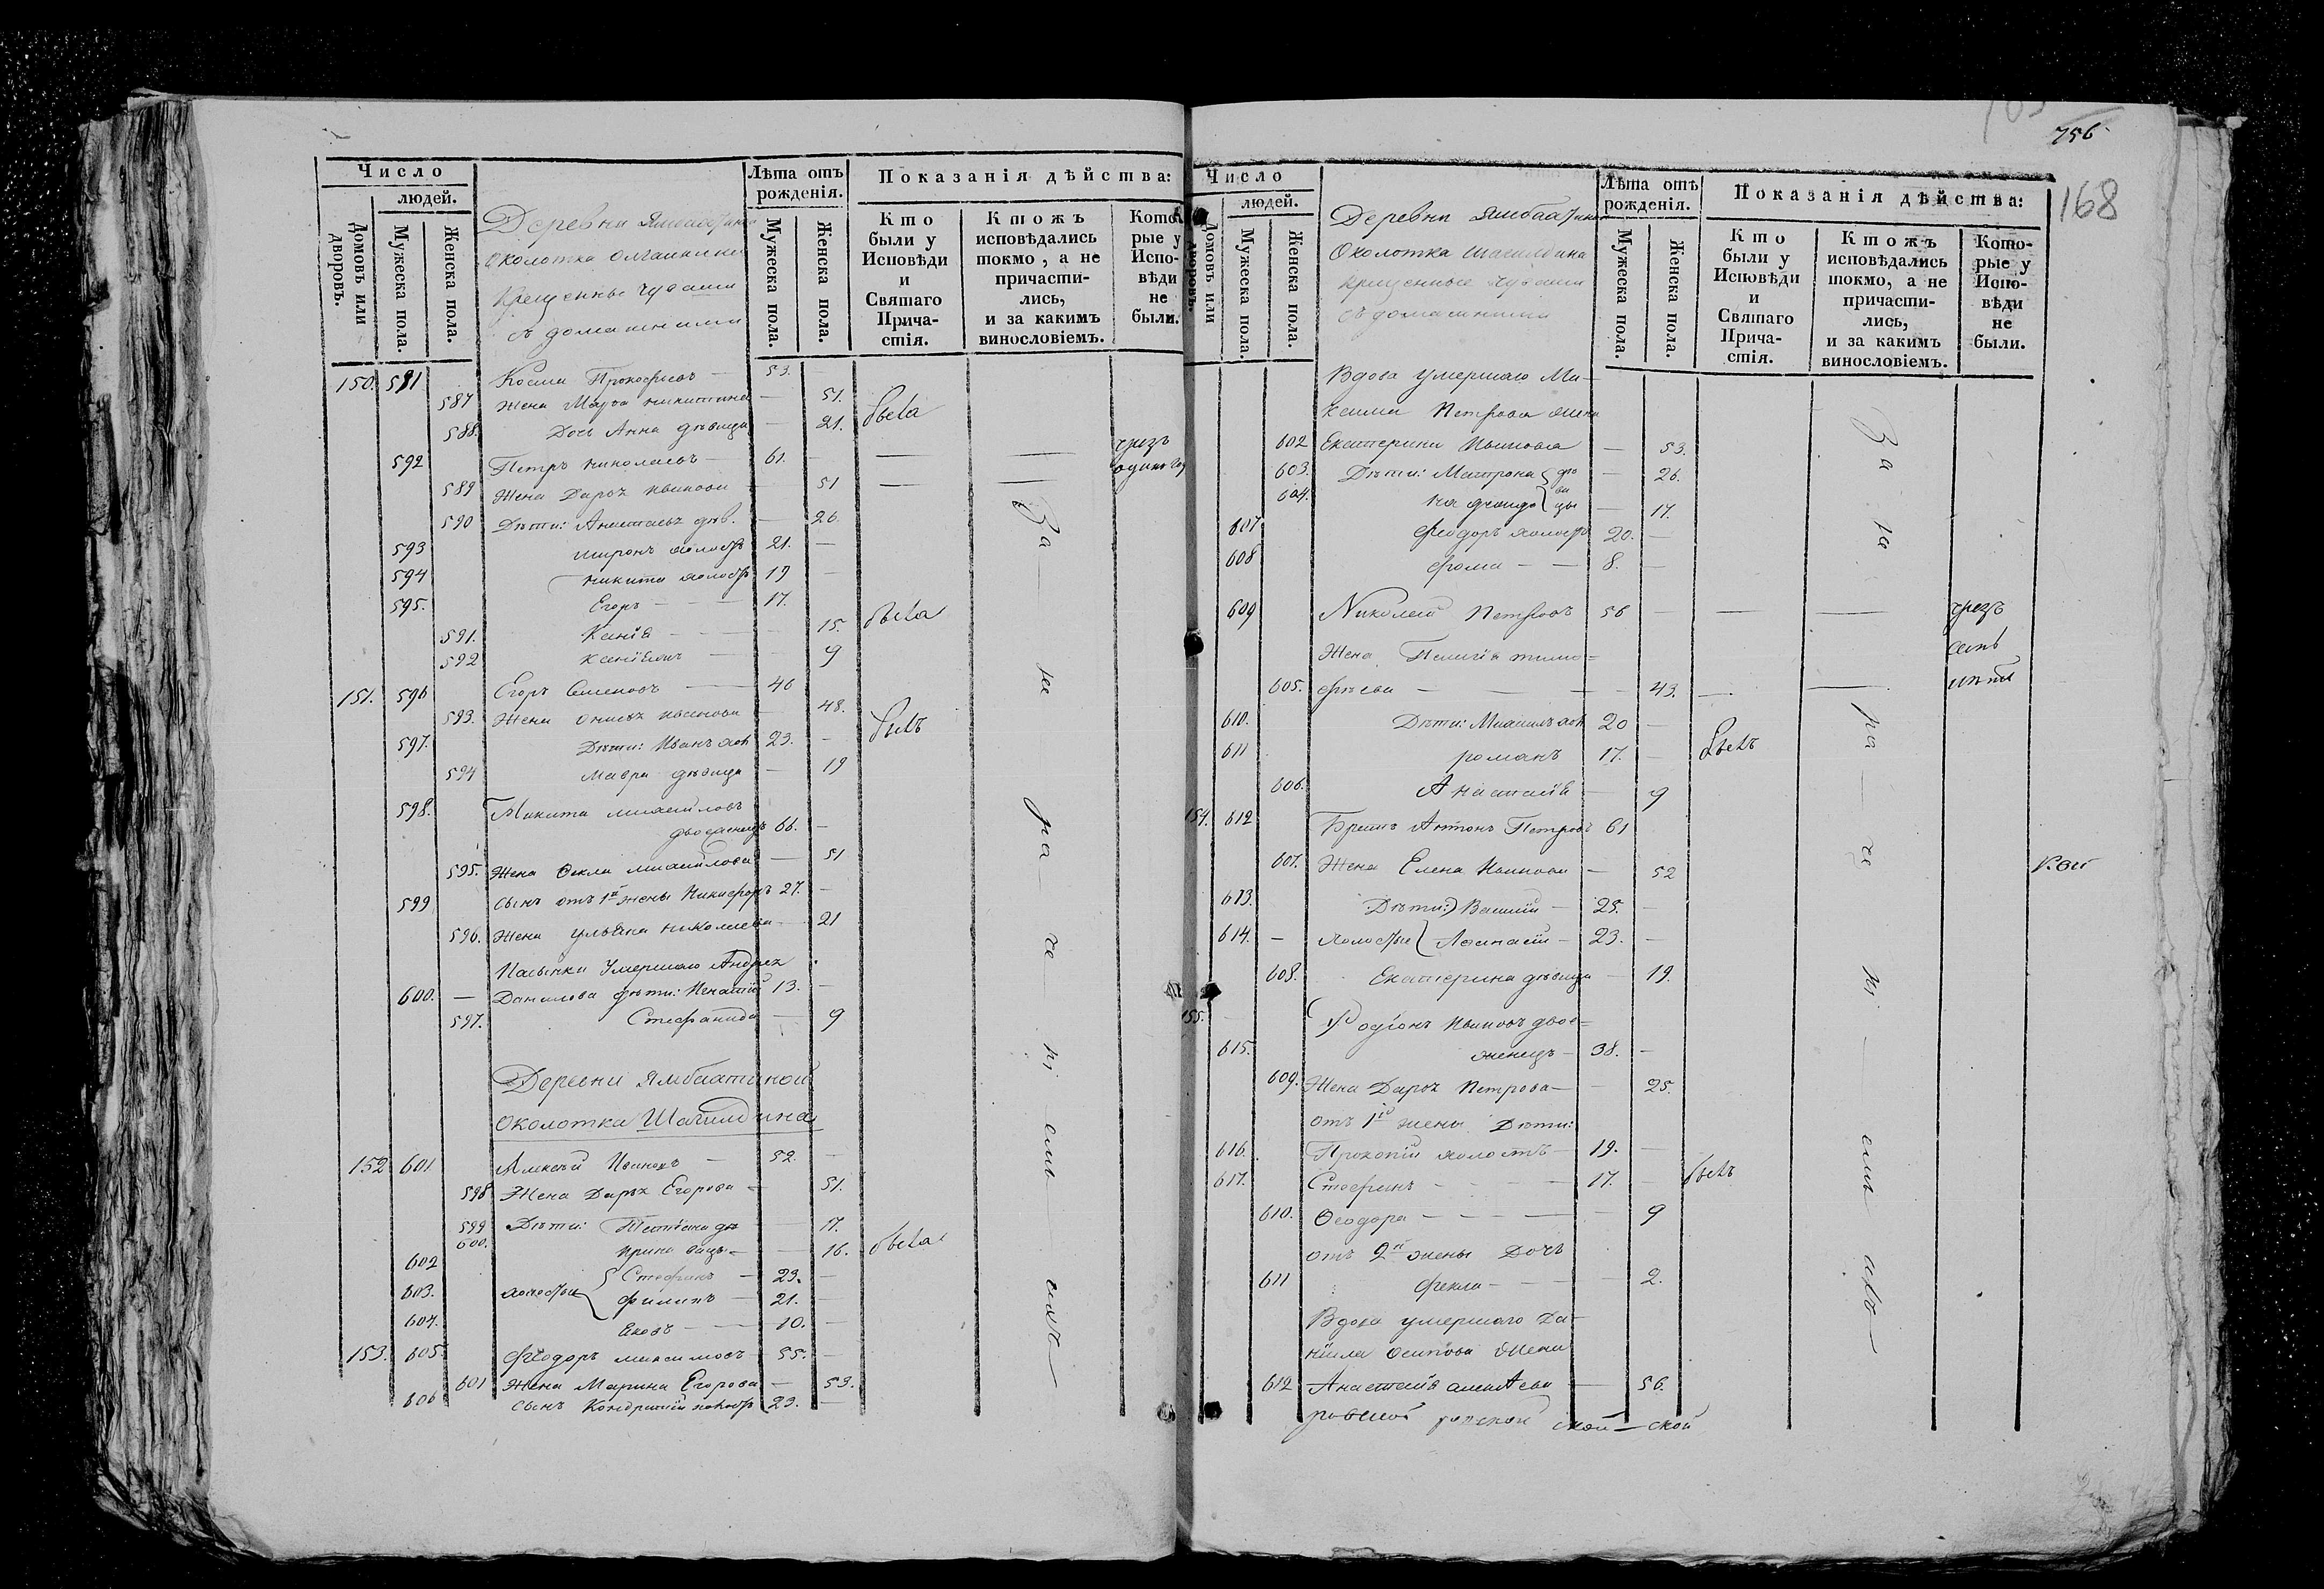 756
168
Число
людей.
Домовъ или дворовъ.
Мужеска пола.
Женска пола.
Деревни
Околотка
Крещенные Чуваши
съ домашними
Лѣта отъ рожденія.
Мужеска пола.
Женска пола.
Показанія дѣйства:
Кто были у Исповѣди и Святаго Причастія.
Ктожъ исповѣдались токмо, а не причастились, и за какимъ винословіемъ.
Которые у Исповѣди не были.
150. 591 Козма Прокофьевъ — 53.
587 Жена Марѳа Никитина — 51.
588. Дочь Анна дѣвица — 21. была
592 Петръ Николаевъ — 61.
589 Жена Дарья Иванова 51
590 Дѣти: Анастасья дѣв. — 26.
593 Миронъ холостъ 21. —
594 Никита холостъ 19 —
595. Егоръ — — — 17.
591. Ксенія — — — 15. была
592 9
151. 596 Егоръ Семеновъ — 46
593. Жена Иванова 48.
597. Дѣти: Иванъ хол 23. —
594 Мавра дѣвица — 19
598. Никита Михайловъ
двоеженецъ 66. —
595. Жена Ѳекла Михайлова — 51
599 сынъ отъ 1й жены Никифоръ 27. —
596. Жена Ульяна Николаева — 21
Пасынки Умершаго Андрея
600. — Данилова дѣти: Игнатій 13. —
597. Стефанида — 9
Деревни Ямбахтиной
Околотка Шагилдина
152 601 Алексѣй Ивановъ — 52. —
598 Жена Дарья Егорова — 51.
599 Дѣти: Татіана дѣ — 17.
600. Ирина вицы — 16. была
602 Стефанъ — 23. —
603. холостые Филипъ — 21. —
604. Яковъ — — 10. —
153. 605. Ѳеодоръ Максимовъ 55. —
601 Жена Марина Егорова — 53.
606 сынъ Кондратій холостъ 23. —
Число
людей.
Домовъ или дворовъ.
Мужеска пола.
Женска пола.
Деревни
Околотка Шагилдина
крещенные Чуваши
съ домашними
Лѣта отъ рожденія.
Мужеска пола.
Женска пола.
Показанія дѣйства:
Кто были у Исповѣди и Святаго Причастія.
Ктожъ исповѣдались токмо, а не причастились, и за какимъ винословіемъ.
Которые у Исповѣди не были.
Вдова умершаго Ма-
ксима Петрова жена
602 Екатерина Иванова — 53.
603. Дѣти: Матрона дѣ — 26.
604. вицы — 17.
607 Ѳеодоръ холостъ 20. —
608 Ѳома — — 8. —
609 Николай Петровъ 56 — — — чрезъ
семь
Жена Пелагія Тимо=
605. фѣева — — — 43. — — лѣтъ
610. Дѣти: Михаилъ хол 20 —
611 романъ 17. — былъ
606. Анастасія — 9
154. 612 Братъ Антонъ Петровъ 61
607. Жена Елена Иванова — 52
613. Дѣти: Василій — 25. —
614. — холостые Аѳанасій — 23. —
608. Екатерина дѣвица — 19.
155. Родіонъ Ивановъ двое=
615. женецъ — 38. —
609. Жена Дарья Петрова — 25.
отъ 1й жены Дѣти:
616. Прокопій холостъ — 19. —
617. Стефанъ — — — 17. — былъ
610. Ѳеодора — — — — 9
отъ 2й жены Дочь
611 Ѳекла — — — 2.
Вдова умершаго Да-
ніила Осипова жена
612 Анастасія — 56.